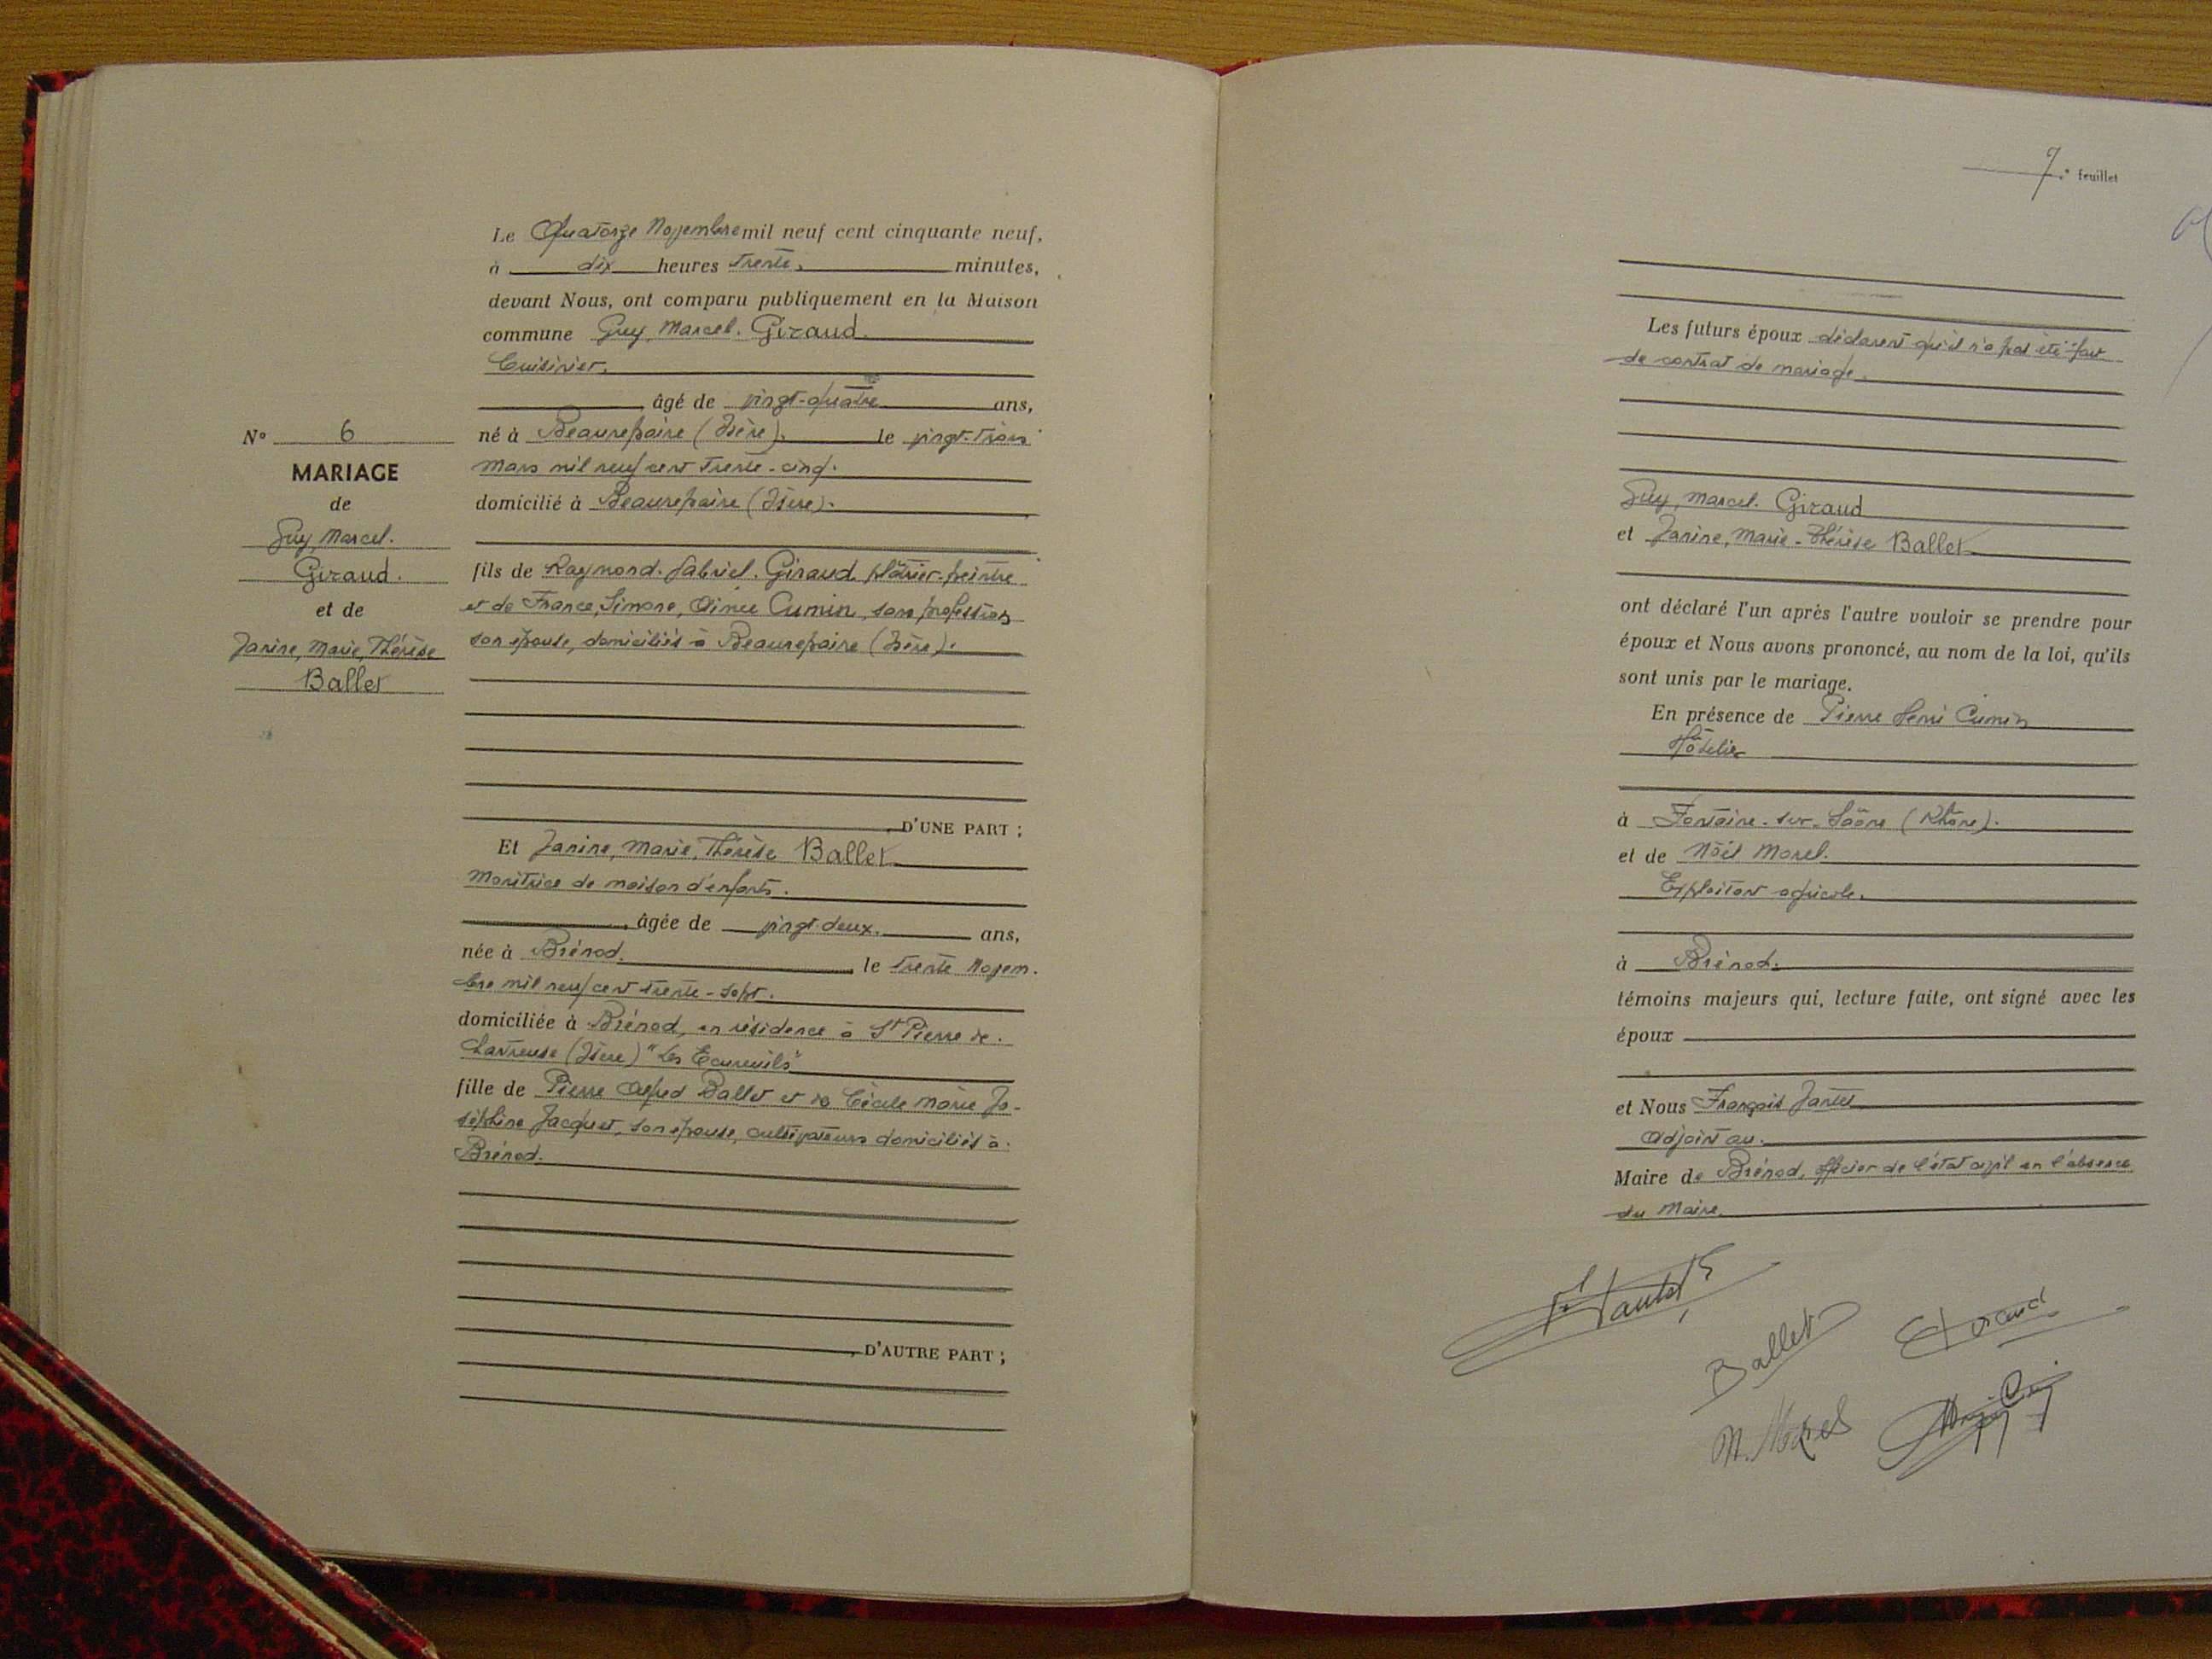 Le Quatorze Novembre mil neuf cent cinquante neuf,
à dix heures trente, minutes,
devant Nous, ont comparu publiquement en la Maison
commune Guy, Marcel. Giraud
Cuisinier,
âgé de vingt-quatre ans,
né à Beaurepaire (Isère). le vingt-trois
Mars mil neuf cent trente-cinq.
domicilié à Beaurepaire (Isère).
fils de Raymond. Gabriel. Giraud, plâtrier-peintre
et de France, Simone, Aimée Cumin, sans profession
son épouse, domiciliés à Beaurepaire (Isère).
D'UNE PART ;
Et Janine, Marie, Thérèse Ballet
Monitrice de maison d'enfants.
âgée de vingt-deux. ans,
née à Brénod. le trente Novem.
bre mil neuf cent trente-sept.
domiciliée à Brénod, en résidence à St Pierre de.
Chartreuse (Isère) "Les Ecureuils"
fille de Pierre Alfred Ballet et de Cécile Marie Jo-
séphine Jacquet, son épouse, cultivateurs domiciliés à.
Brénod.
D'AUTRE PART ;
N° 6
MARIAGE
de
Guy, Marcel.
Giraud.
et de
Janine, Marie, Thérèse
Ballet
7.e feuillet
Les futurs époux déclarent qu'il n'a pas été fait
de contrat de mariage.
Guy, Marcel. Giraud
et Janine, Marie-Thérèse Ballet
ont déclaré l'un après l'autre vouloir se prendre pour
époux et Nous avons prononcé, au nom de la loi, qu'ils
sont unis par le mariage.
En présence de Pierre Henri Cumin
Hôtelier
à Fontaine-sur-Saône (Rhône).
et de Noël Morel.
Exploitant agricole.
à Brénod.
témoins majeurs qui, lecture faite, ont signé avec les
époux
et Nous François Jantet
Adjoint au.
Maire de Brénod, officier de l'état civil en l'absence
du Maire.
Jantet
Ballet
Giraud
N. Morel